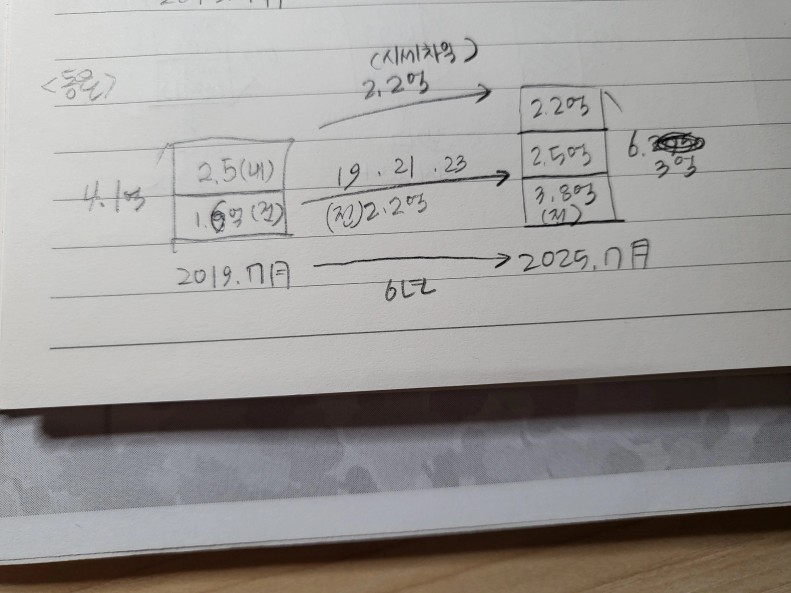 (시세차익)
2.2억
2.2억
4.1억
2.5(내)
19. 21. 23
2.5억
6.
3억
1.6억(전)
(전)2.2억
3.8억
(전)
2019.7月
6년
2025.7月